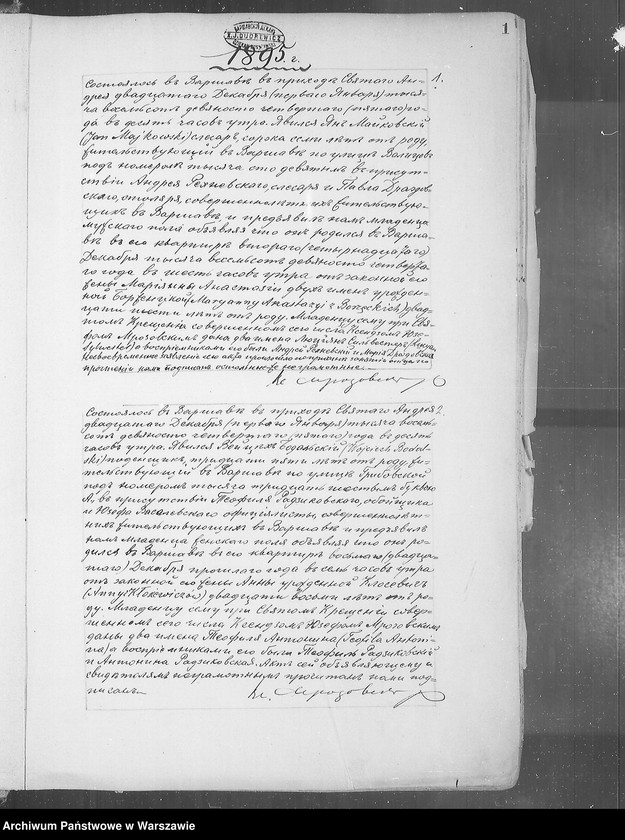 1
1895 г.
1.
Состоялось въ Варшавѣ въ приходѣ Святаго Ан-
дрея двадцатаго Декабря (перваго Января) тыся-
ча восемьсотъ девяносто четвертаго (пятаго) го-
да въ десять часовъ утра. Явился Янъ Майковскій
(Jan Majkowski) слесарь, сорока семи лѣтъ отъ роду,
жительствующій въ Варшавѣ по улицѣ
подъ номеромъ тысяча сто девятымъ въ присут-
ствіи Андрея Рехневскаго, слесаря и Павла Дроздов-
скаго, столяра, совершеннолѣтнихъ жительствую-
щихъ въ Варшавѣ, и предъявилъ намъ младенца
мужескаго пола объявляя что онъ родился въ Варша-
вѣ въ его квартирѣ втораго (четырнадцатаго)
Декабря тысяча восемьсотъ девяносто четверта-
го года въ шесть часовъ утра отъ законной его
жены Маріянны Анастазіи двухъ именъ урожден-
ной
цати шести лѣтъ отъ роду. Младенцу сему при Свя-
томъ Крещеніи совершенномъ сего числа Ксендзомъ Юзе-
фомъ Мрозовскимъ дана два имена Люціянъ Сильвестеръ
а воспріемниками его были Андрей Рехневскій и Марія Дроздовская
прочтеніи нами подписанъ
Состоялось въ Варшавѣ въ приходѣ Святаго Андрея 2.
двадцатаго Декабря (перваго Января) тысяча восемь-
сотъ девяносто четвертаго (пятаго) года въ десять
часовъ утра. Явился Войцѣхъ
поденщикъ, тридцати пяти лѣтъ отъ роду, жи-
тельствующій въ Варшавѣ по улицѣ Гржибовской
подъ номеромъ тысяча тридцать шестымъ буквою
А, въ присутствіи Теофиля Радзиковскаго, обойщика
и Юзефа Василевскаго оффиціялисты, совершеннолѣт-
нихъ жительствующихъ въ Варшавѣ и предъявилъ
намъ младенца женскаго пола объявляя что онъ ро-
дился въ Варшавѣ въ его квартирѣ восьмаго (двадца-
таго) Декабря прошлаго года въ семь часовъ утра
отъ законной его жены Анны урожденной Клосевичъ
двадцати восьми лѣтъ отъ ро-
ду. Младенцу сему при Святомъ Крещеніи совер-
шенномъ сего числа Ксендзомъ Юзефомъ Мрозовскимъ
даны два имена Теофиля Антонина (Teofila Antoni-
na) а воспріемниками его были Теофиль Радзиковскій
и Антонина Радзиковская. Актъ сей объявляющему и
свидѣтелямъ неграмотнымъ прочитанъ нами под-
писанъ
Archiwum Państwowe w Warszawie